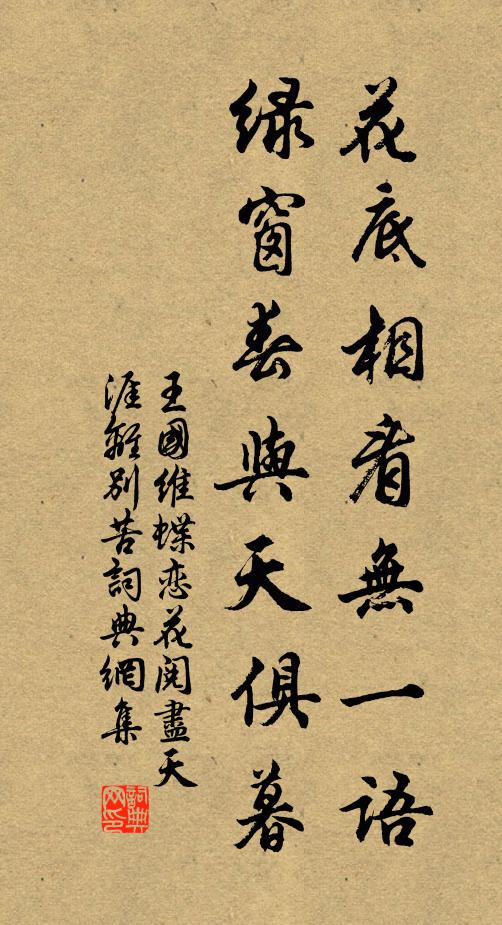 花底相看無一語
綠窗春與天俱暮
王國維蝶戀花閱盡天
涯離別苦詞典網集
詞典網印